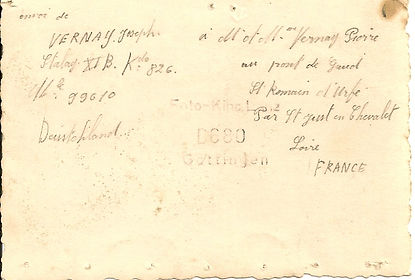 envoi de
VERNAY Joseph
Stalag XI B. Kdo 826.
Me 99610
Deutschland
à Mr et Mme Vernay Pierre
au pont de
St Romain d'Urfé
Par St Just en Chevalet
Loire
FRANCE
Foto-Kino
D680
Göttingen